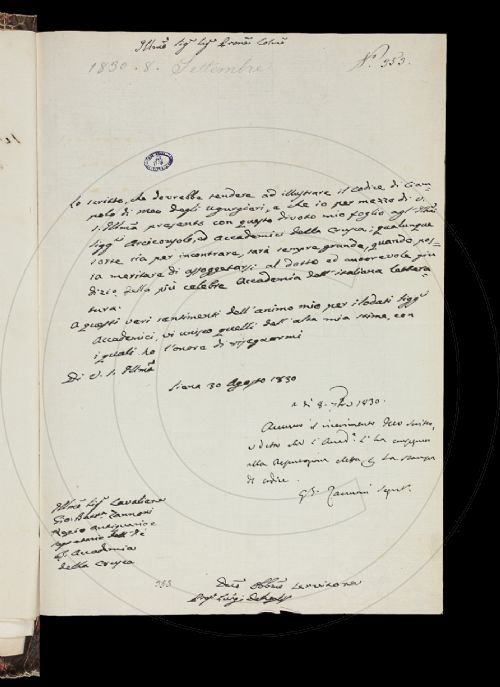 Illmo Sig. Sig. Prone Colmo
1830. 8. Settembre
N. 353.
Lo scritto, che dovrebbe tendere ad illustrare il codice di Ciam
polo di Meo degli Ugurgieri, e che io per mezzo di V.
S. Illma presento con questo divoto mio foglio agl' Illmi
Sigg. Arciconsolo, ed Accademici della Crusca; qualunque
sorte sia per incontrare, sarà sempre grande, quando pos-
sa meritare di assogettarsi al dotto ed amorevole giu
dizio della più celebre Accademia dell' italiana Lettera
tura.
A questi veri sentimenti dell' animo mio per i lodati Sigg.
Accademici, vi unisco quelli dell' alta mia stima, con
i quali ho l'onore di segnarmi
Di V. S. Illma
Siena 30 Agosto 1830
a dì 8. 1830.
il ricevimento dello scritto,
e detto che l' Accad. l' ha
alla Deputazione eletta la stampa
di codice.
G. B. Zannoni Segret.
Illmo Sig. Cavaliere
Gio. Batta Zannoni
Regio Antiquario e
Segretario dell'
Accademia
della Crusca
353
Devo Obbmo Servitore
Luigi